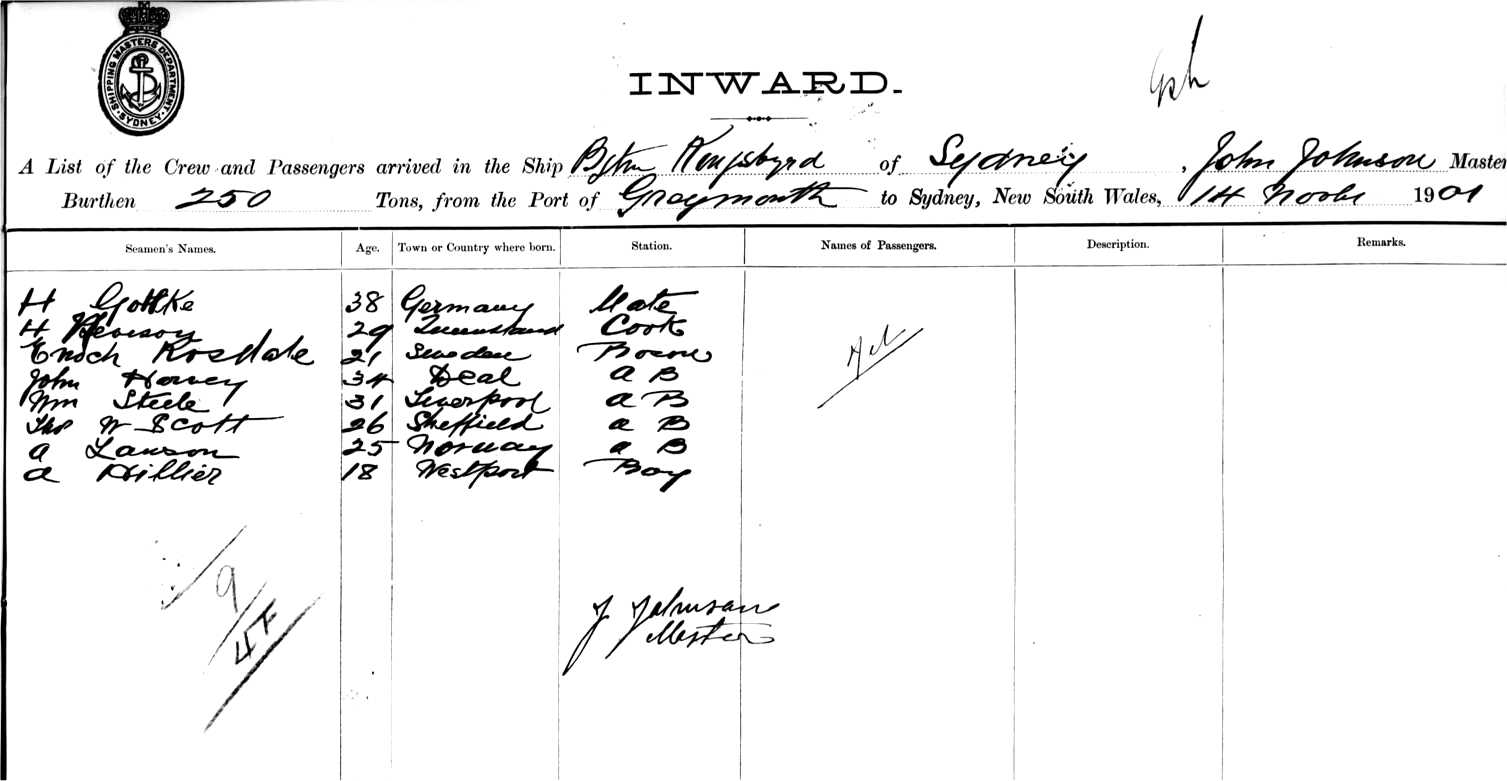 SHIPPING MASTERS DEPARTMENT. SYDNEY.
INWARD.
A List of the Crew and Passengers arrived in the Ship Bqtn of Sydney, John Johnson Master
Burthen 250 Tons, from the Port of Greymouth to Sydney, New South Wales, 14 1901
Seamen's Names. Age. Town or Country where born. Station. Names of Passengers. Description. Remarks.
H 38 Germany Mate
H 29 Queensland Cook
Enoch Rosdale 21 Sweden Bosun
John Harvey 34 Deal A B
Wm Steele 31 Liverpool A B
Thos W Scott 26 Sheffield A B
A Lawson 25 Norway A B
A Hillier 18 Westport Boy
Nil
9
J Johnson
Master